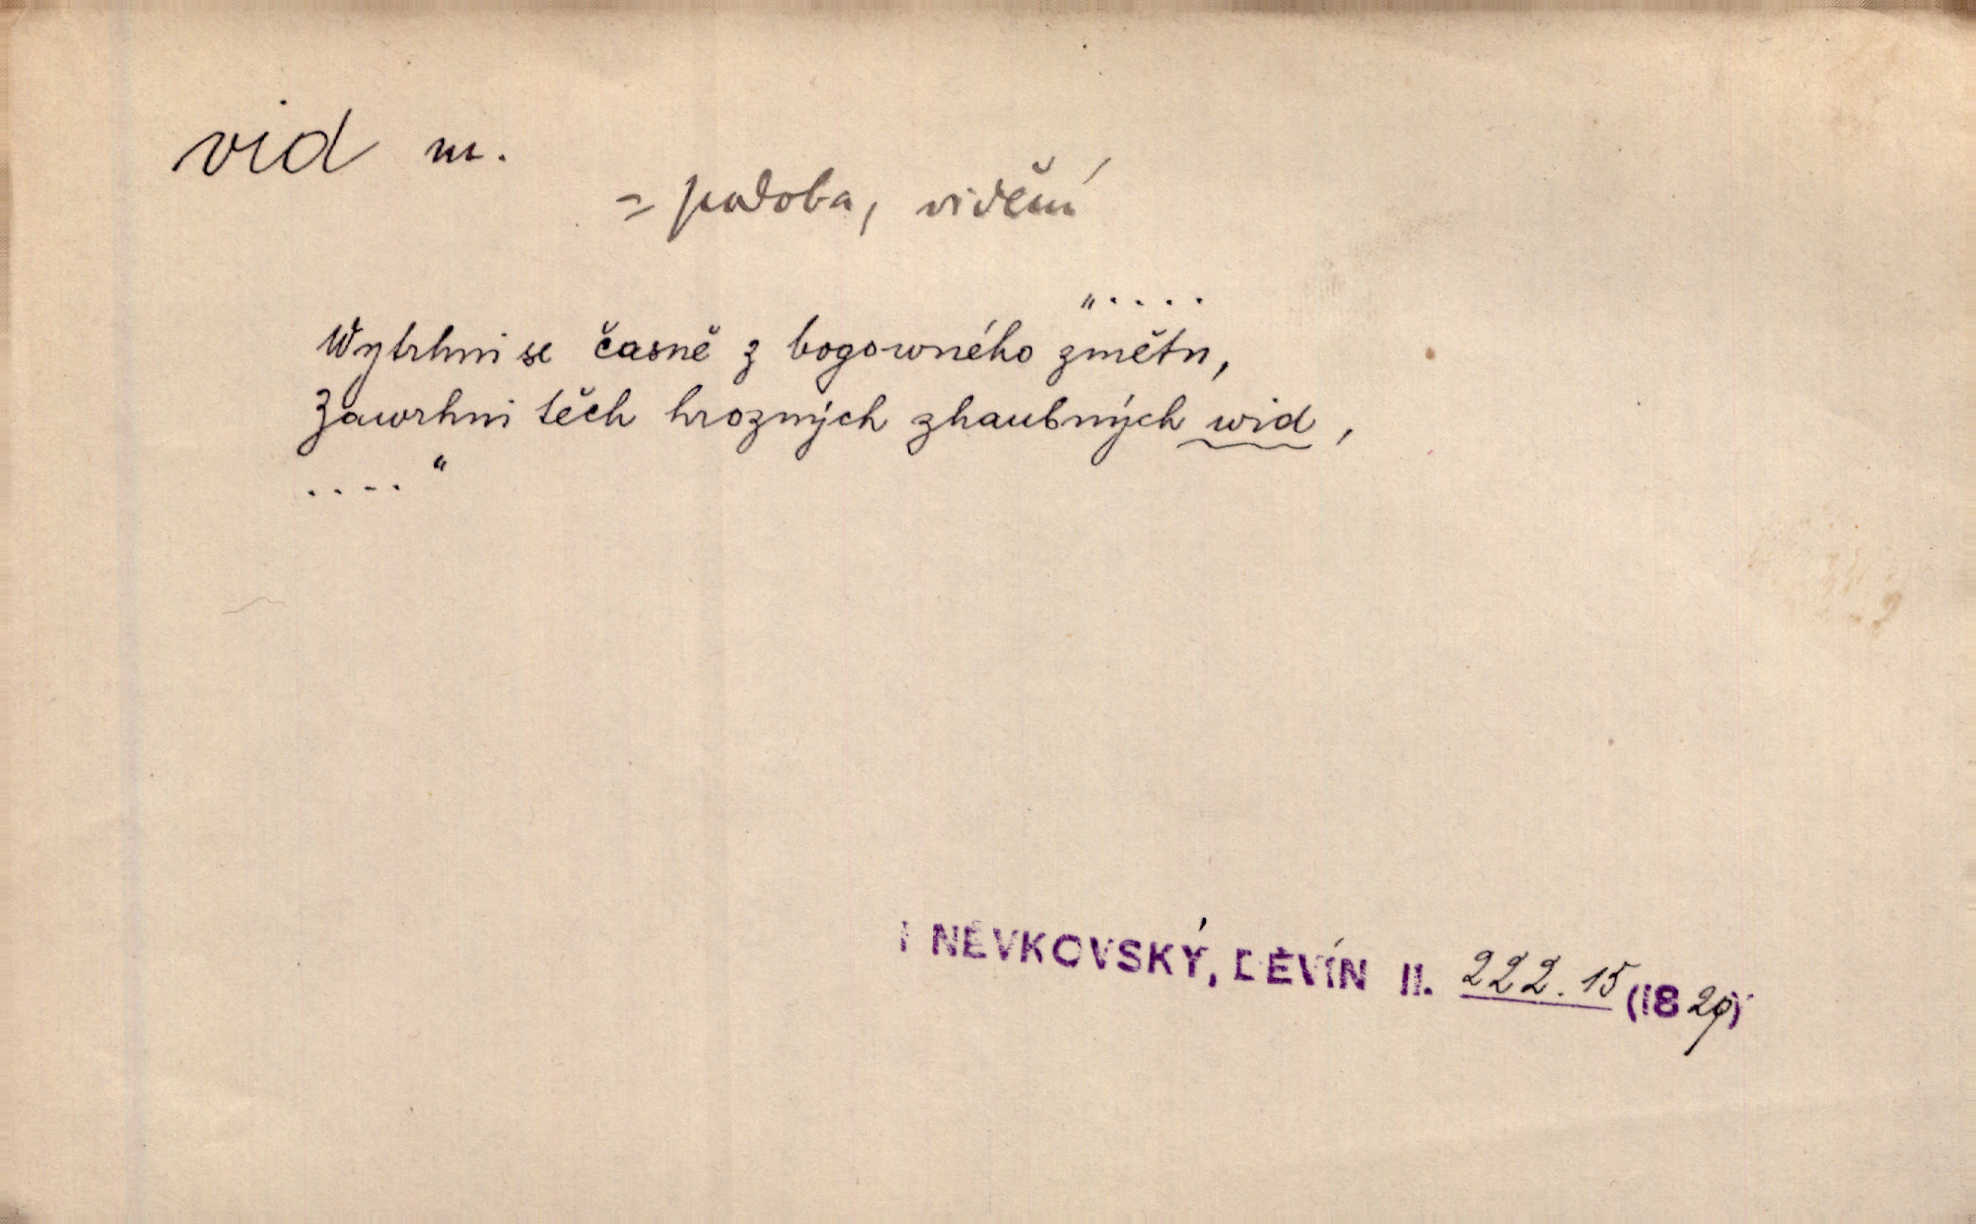 vid m.
= podoba, vidění
"....
Wytrhni se časně z bogowného změtu,
Zawrhni těch hrozných zhaubných wid,
...."
NĚVKOVSKÝ, DĚVÍN II. 222.15 (1829)